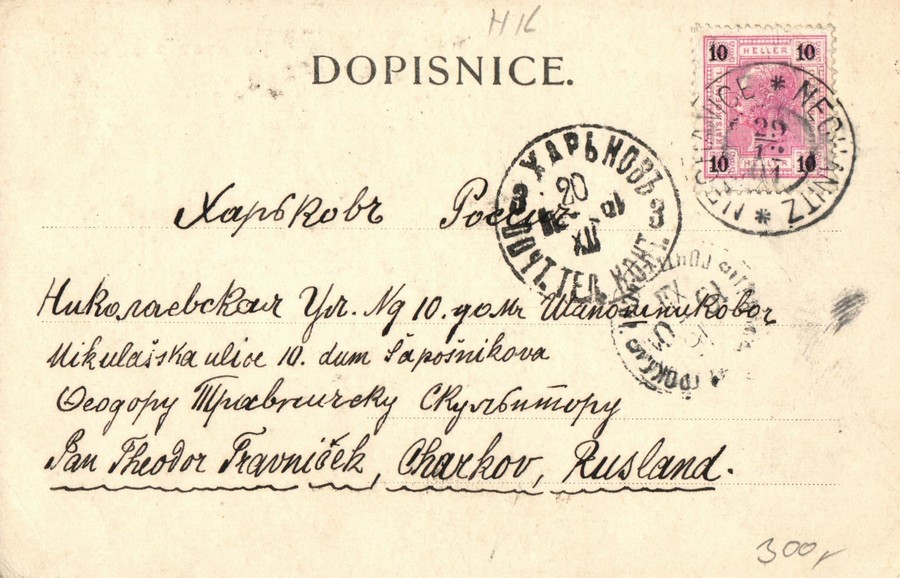 НК
DOPISNICE.
10 HELLER 10
10 10
NECHANICE * NECHANITZ *
29
ХАРЬКОВЪ
3 20 3
XII
ПОЧТ. ТЕЛ. КОНТ.
Харьковъ Россия
Николаевская Ул. № 10. домъ Шапошниковой
Mikulášská ulice 10. dum Šapošnikova
Ѳеодору Травничеку Скульптору
Pan Theodor Travniček, Charkov, Rusland.
300,-